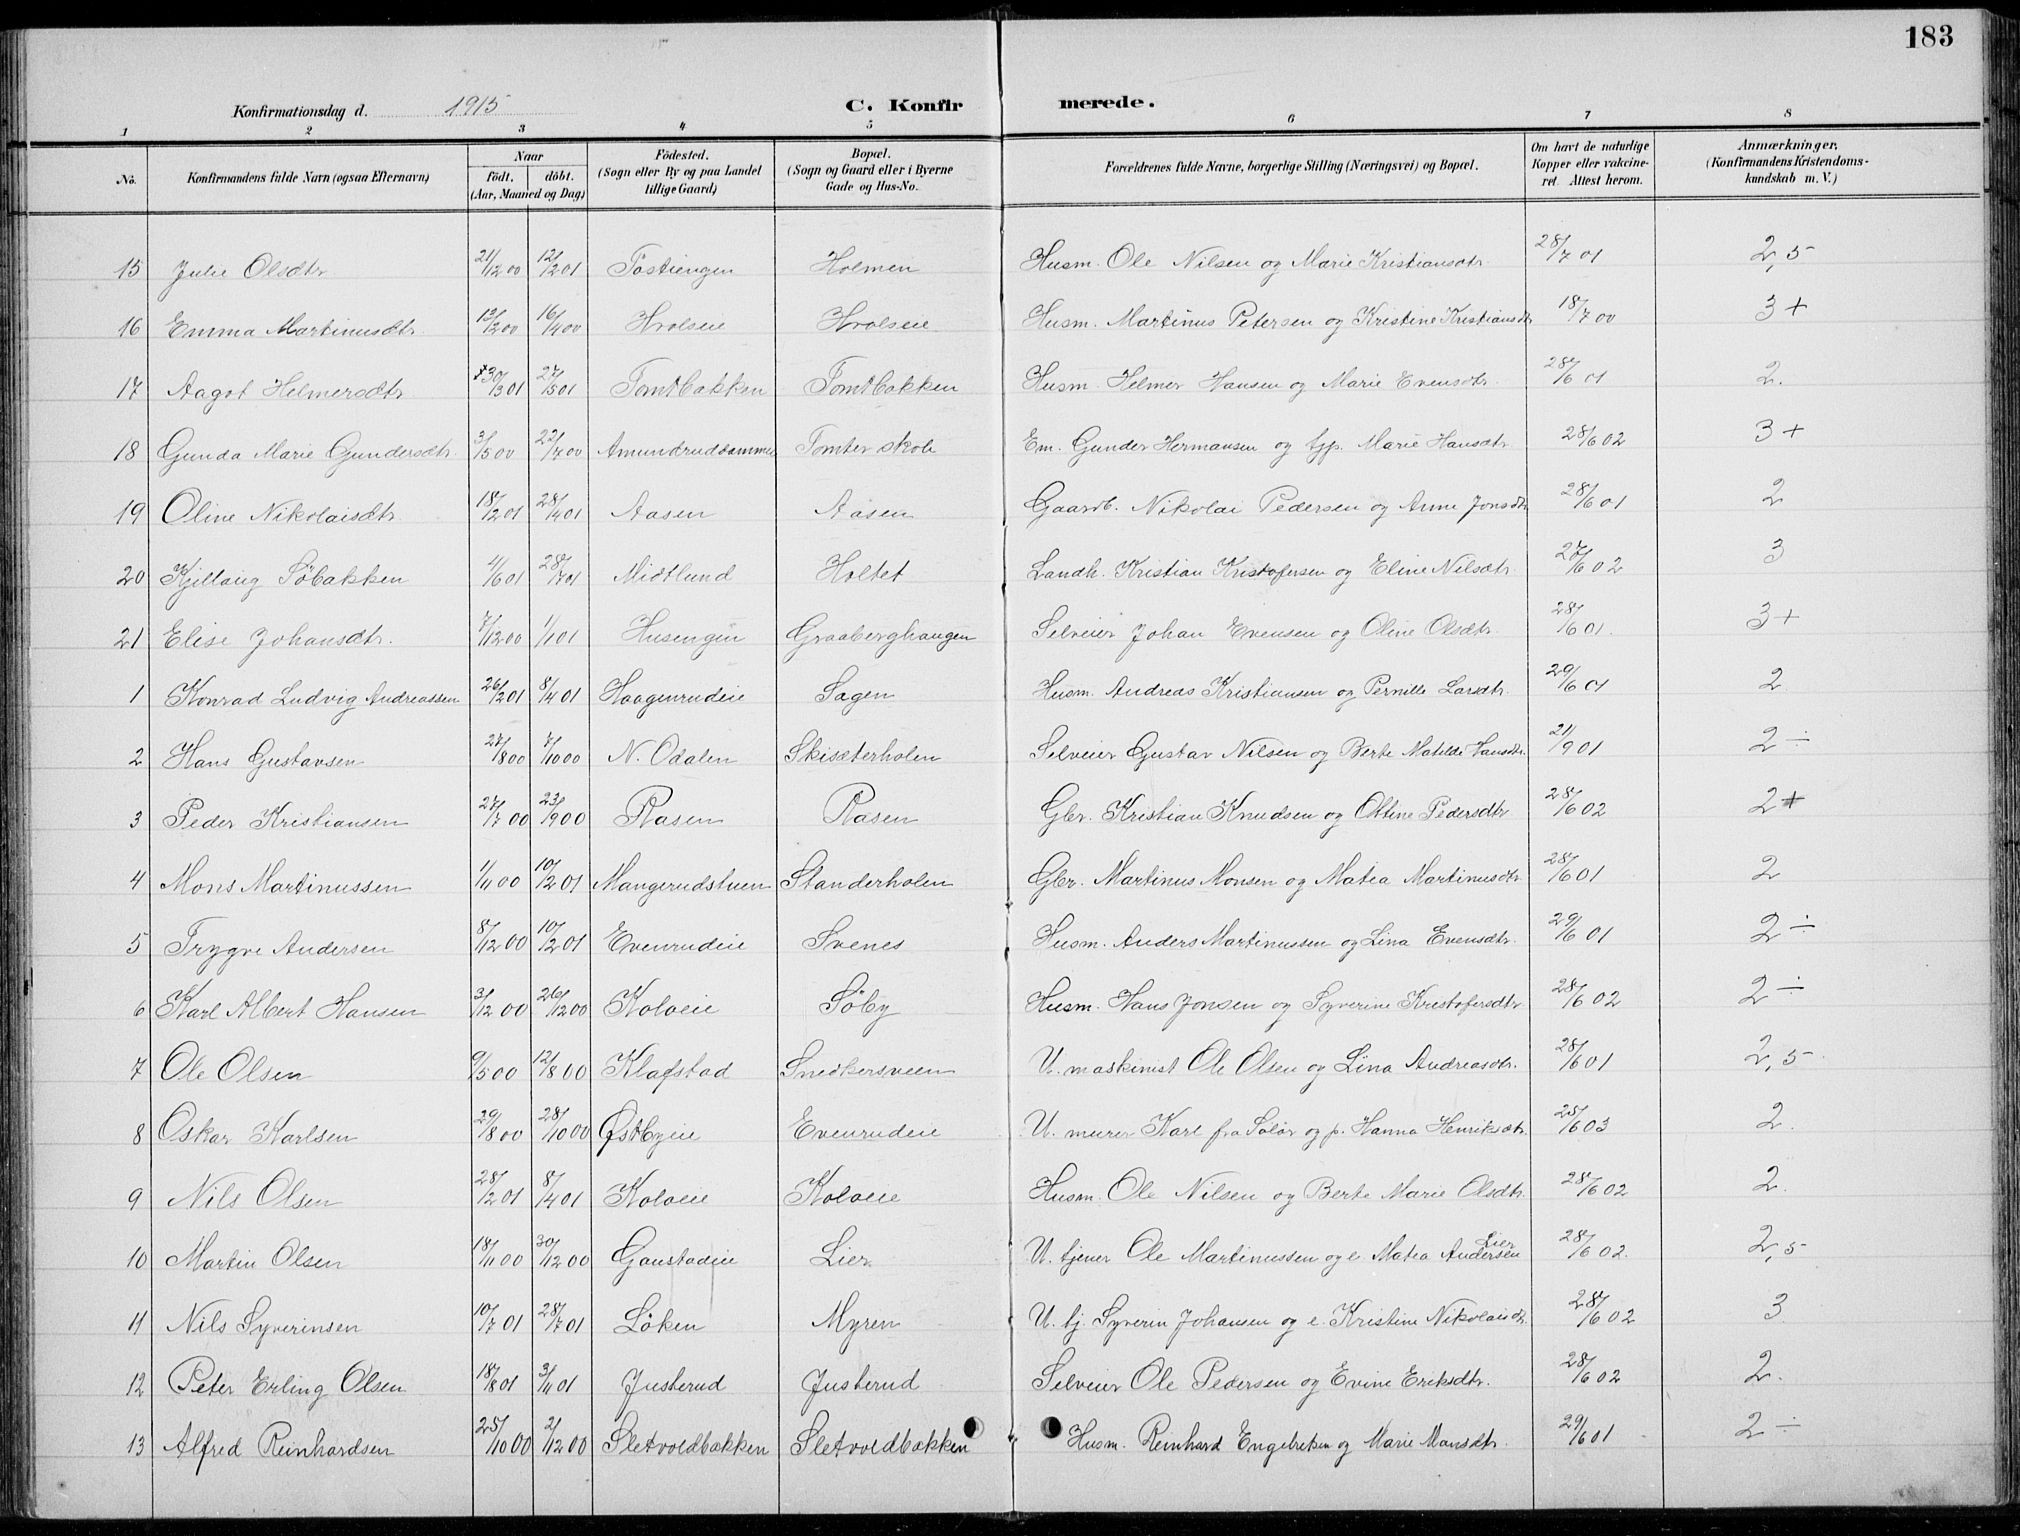 183
Konfirmationsdag d. 1915 C. Konfir merede.
1 2 3 4 5 6 7 8
No. Konfirmandens fulde Navn (ogsaa Efternavn) Naar født. døbt. (Aar, Maaned og Dag) Födested. (Sogn eller By og paa Landet tillige Gaard) Bopæl. (Sogn og Gaard eller i Byerne Gade og Hus-No. Forældrenes fulde Navne, borgerlige Stilling (Næringsvei) og Bopæl. Om havt de naturlige Kopper eller vakcineret. Attest herom. Anmærkninger. (Konfirmandens Kristendomskundskab m. V.)
15 Julie Olsdtr 21/12 00 12/2 01 Tostiengen Holmen Husm. Ole Nilsen og Marie Kristiansdtr. 28/7 01 2,5
16 Emma Martinusdtr. 13/2 00 16/4 00 Hvolseie Hvolseie Husm. Martinus Petersen og Kristine Kristiansdtr 18/7 00 3+
17 Aagot Helmersdtr 30/3 01 27/5 01 Tomtbakken Tomtbakken Husm. Helmer Hansen og Marie Evensdtr. 28/6 01 2.
18 Gunda Marie Gundersdtr. 3/5 00 22/7 00 Amundruddammen Tomter skole Em. Gunder Hermansen og tjp. Marie Hansdtr 28/6 02 3+
19 Oline Nikolaisdtr 18/2 01 28/4 01 Aasen Aasen Gaardb. Nikolai Pedersen og Anne Jonsdtr 28/6 01 2
20 Kjellaug Söbakken 4/6 01 28/7 01 Midtlund Holtet Landh. Kristian Kristofersen og Eline Nilsdtr. 27/6 02 3
21 Elise Johansdtr. 7/12 00 1/1 01 Husengen Graaberghaugen Selveier Johan Evensen og Oline Olsdtr. 28/6 01. 3+
1 Konrad Ludvig Andreassen 26/2 01 8/4 01 Haagenrudeie Sagen Husm. Andreas Kristiansen og Pernille Larsdtr. 29/6 01 2
2 Hans Gustavsen 27/8 00 7/10 00 N. Odalen Skisæterholen Selveier Gustav Nilsen og Berte Matilde Hansdtr. 21/9 01 2÷
3 Peder Kristiansen 27/7 00 23/9 00 Rasen Rasen Gbr. Kristian Knudsen og Ottine Pedersdtr 28/6 02 2+
4 Mons Martinussen 1/11 00 10/2 01 Mangerudstuen Standerholen Gbr. Martinus Monsen og Matea Martinusdtr 28/6 01 2
5 Trygve Andersen 8/12 00 10/2 01 Evenrudeie Svenes Husm. Anders Martinussen og Lina Evensdtr. 29/6 01 2÷
6 Karl Albert Hansen 3/12 00 26/12 00 Koloeie Söby Husm. Hans Jonsen og Syverine Kristofersdtr 28/6 02 2÷
7 Ole Olsen 9/5 00 12/8 00 Klafstad Snedkersveen U. maskinist Ole Olsen og Lina Andreasdtr. 28/6 01 2,5
8 Oskar Karlsen 29/8 00 28/10 00 Østbyeie Evenrudeie U. murer Karl fra Solör og p. Hanna Henriksdtr. 25/6 03 2.
9 Nils Olsen 28/2 01 8/4 01 Koloeie Koloeie Husm. Ole Nilsen og Berte Marie Olsdtr. 28/6 02 2.
10 Martin Olsen 18/11 00 30/12 00 Gaustadeie Lier U. tjener Ole Martinussen og e. Matea Andersen Lier 28/6 02. 2,5
11 Nils Syverinsen 10/7 01 28/7 01 Löken Myren U. tj. Syverin Johansen og e. Kristine Nikolaisdtr. 28/6 02 3
12 Peter Erling Olsen 18/8 01 3/11 01 Justerud Justerud Selveier Ole Pedersen og Evine Eriksdtr. 28/6 02 2.
13 Alfred Reinhardsen 25/10 00 2/12 00 Sletvoldbakken Sletvoldbakken Husm. Reinhard Engebretsen og Marie Monsdtr. 29/6 01 2÷